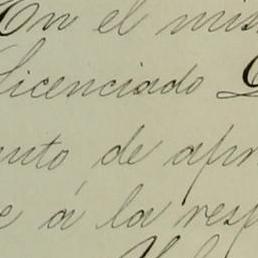 En el mis
Licenciado
nto de apr
e á la resp